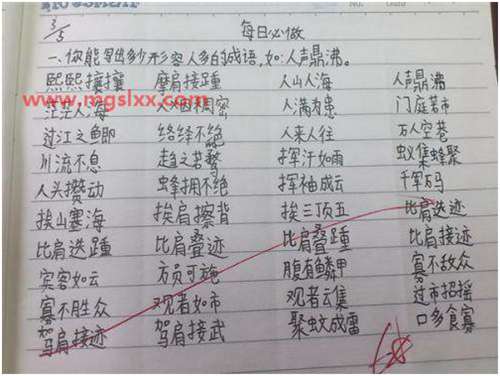 3/5 每日必做
一、你能写出多少形容人多的成语,如:人声鼎沸。
熙熙攘攘 摩肩接踵 人山人海 人声鼎沸
www.mgslxx.com
茫茫人海 人烟稠密 人满为患 门庭若市
过江之鲫 络绎不绝 人来人往 万人空巷
川流不息 趋之若鹜 挥汗如雨 蚁集蜂聚
人头攒动 蜂拥不绝 挥袖成云 千军万马
挨山塞海 挨肩擦背 挨三顶五 比肩迭迹
比肩迭踵 比肩叠迹 比肩叠踵 比肩接迹
宾客如云 方员可施 腹有鳞甲 寡不敌众
寡不胜众 观者如市 观者云集 过市招摇
驾肩接迹 驾肩接武 聚蚊成雷 口多食寡